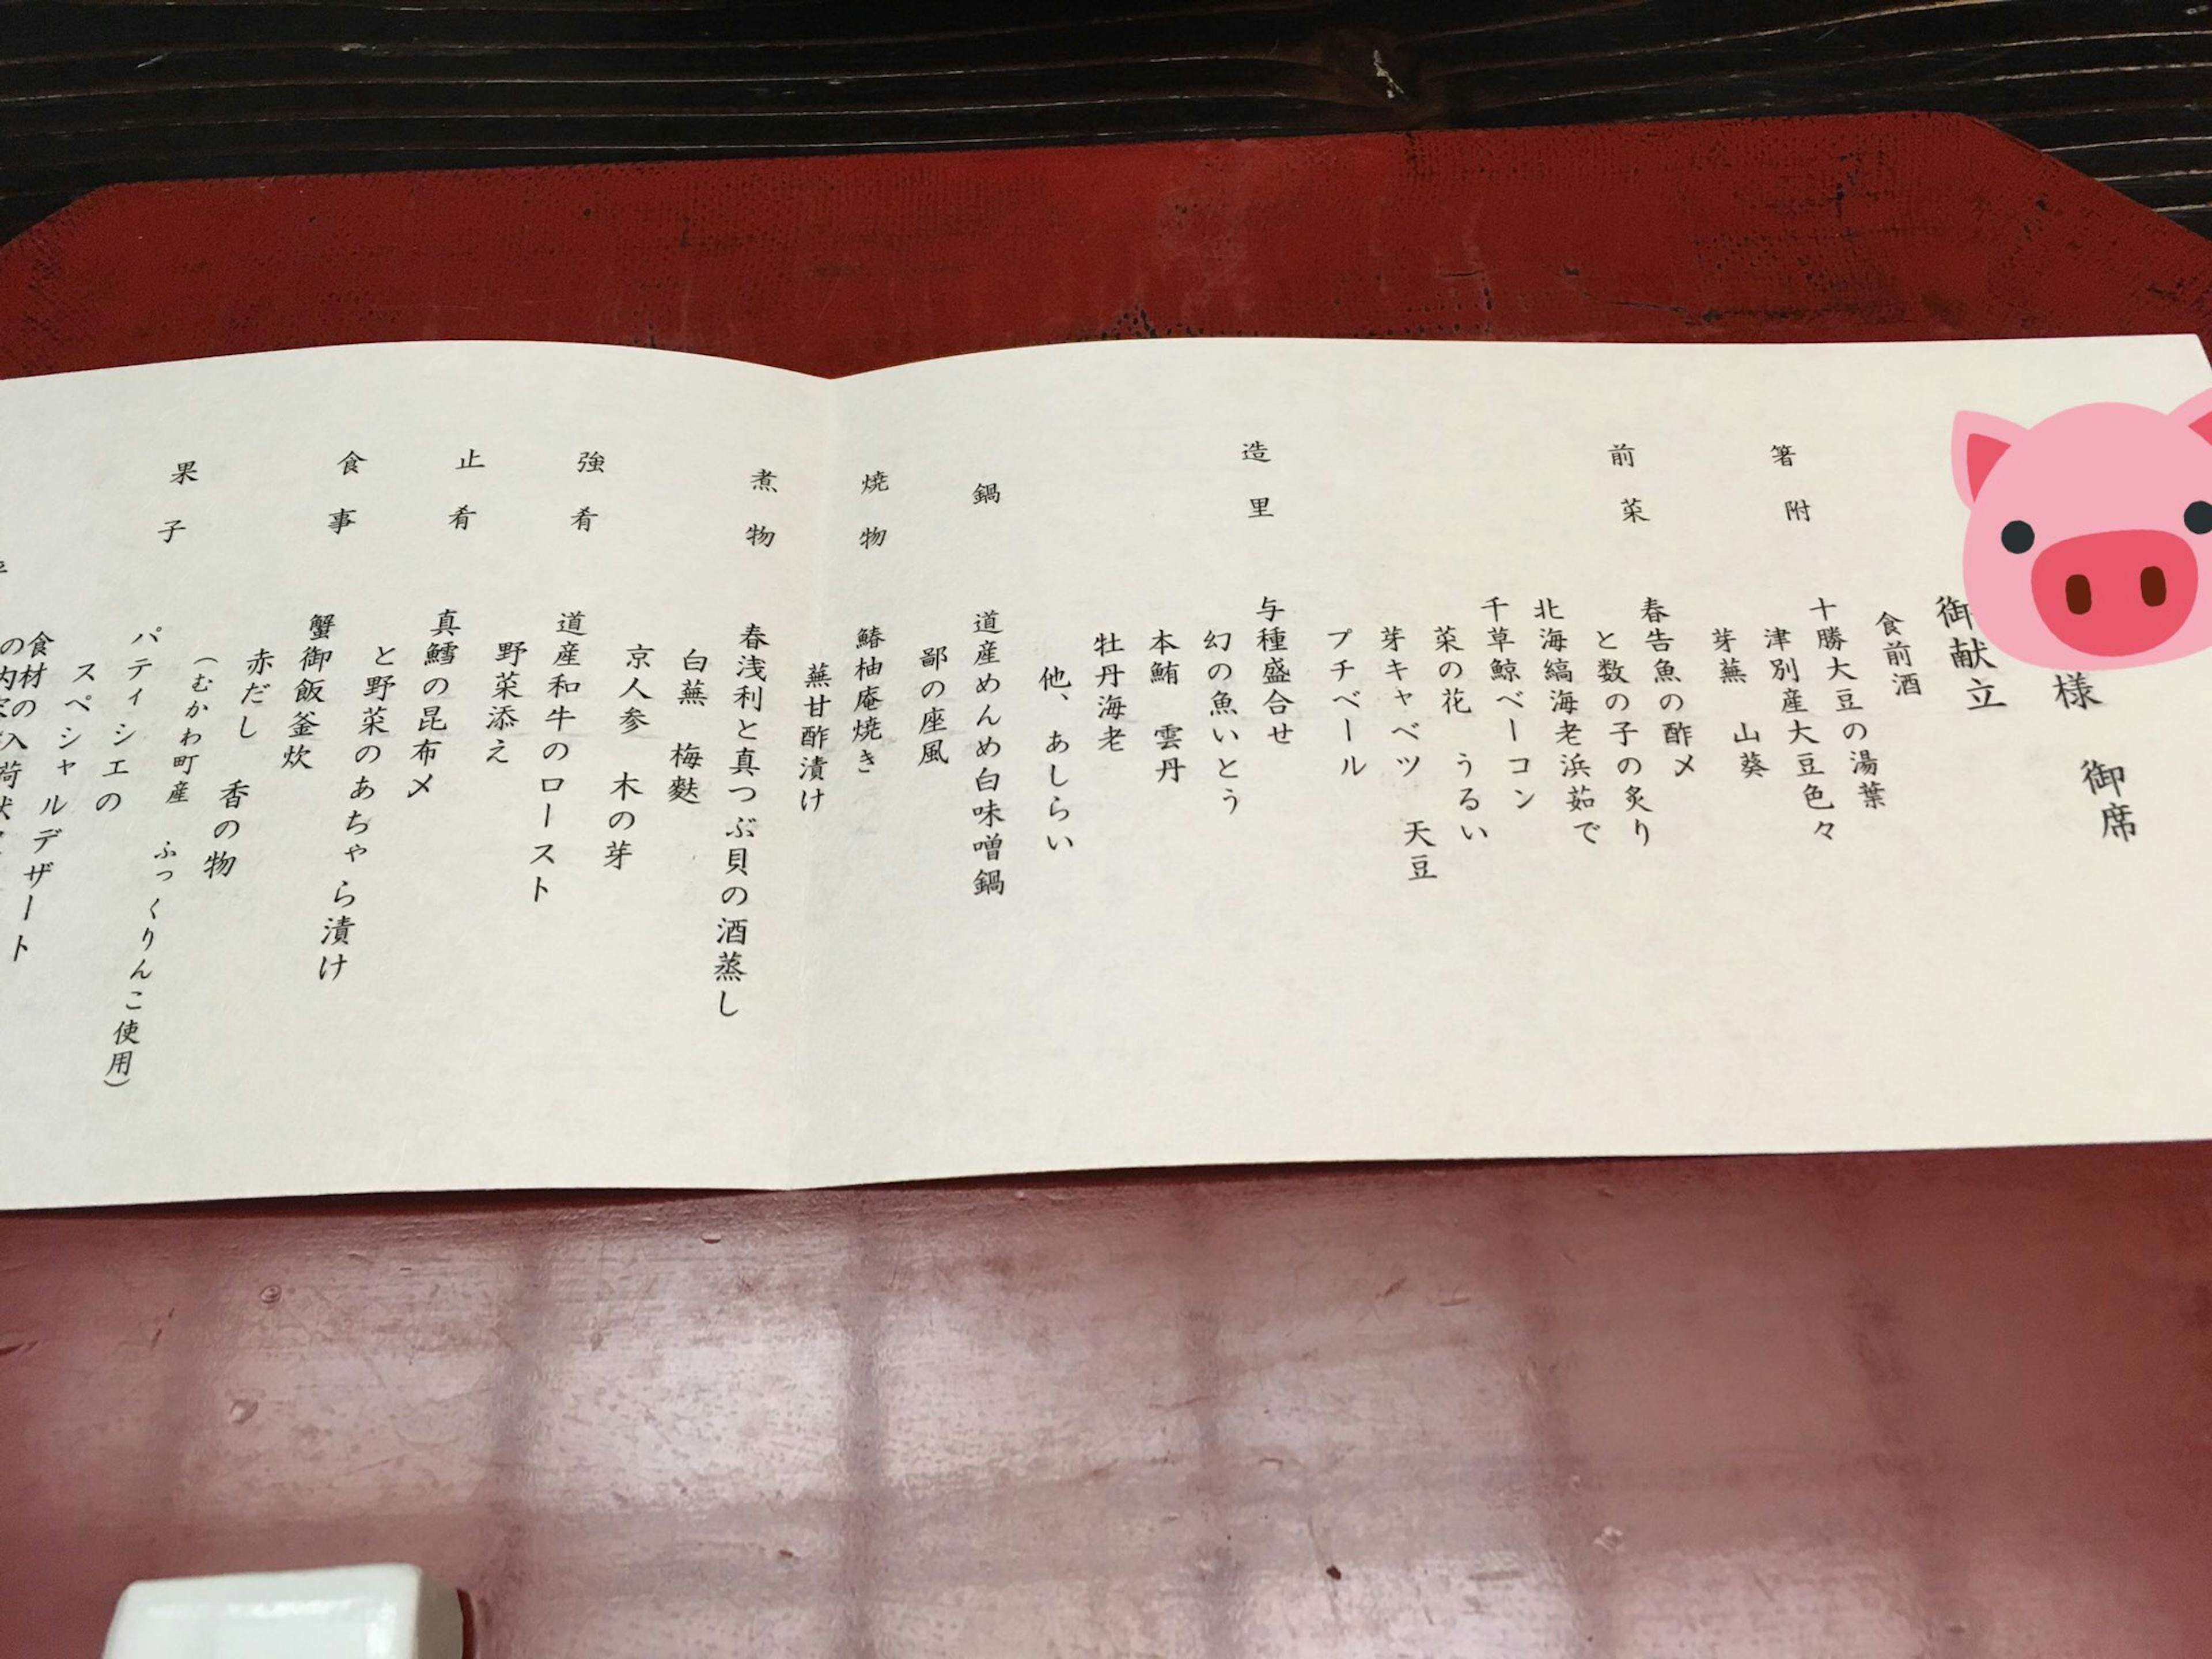 様 御席
御献立
食前酒
箸附
十勝大豆の湯葉
津別産大豆色々
芽蕪 山葵
前菜
春告魚の酢〆
と数の子の炙り
北海縞海老浜茹で
千草鯨ベーコン
菜の花 うるい
芽キャベツ 天豆
プチベール
造里
与種盛合せ
幻の魚いとう
本鮪 雲丹
牡丹海老
他、あしらい
鍋
道産めんめ白味噌鍋
鄙の座風
焼物
鰆柚庵焼き
蕪甘酢漬け
煮物
春浅利と真つぶ貝の酒蒸し
白蕪 梅麩
京人参 木の芽
強肴
道産和牛のロースト
野菜添え
止肴
真鱈の昆布〆
と野菜のあちゃら漬け
食事
蟹御飯釜炊
赤だし 香の物
(むかわ町産 ふっくりんこ使用)
果子
パティシエの
スペシャルデザート
食材の入荷状
の内